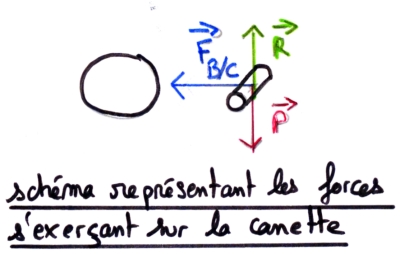 F B/C
R
P
schéma représentant les forces
s'exerçant sur la canette